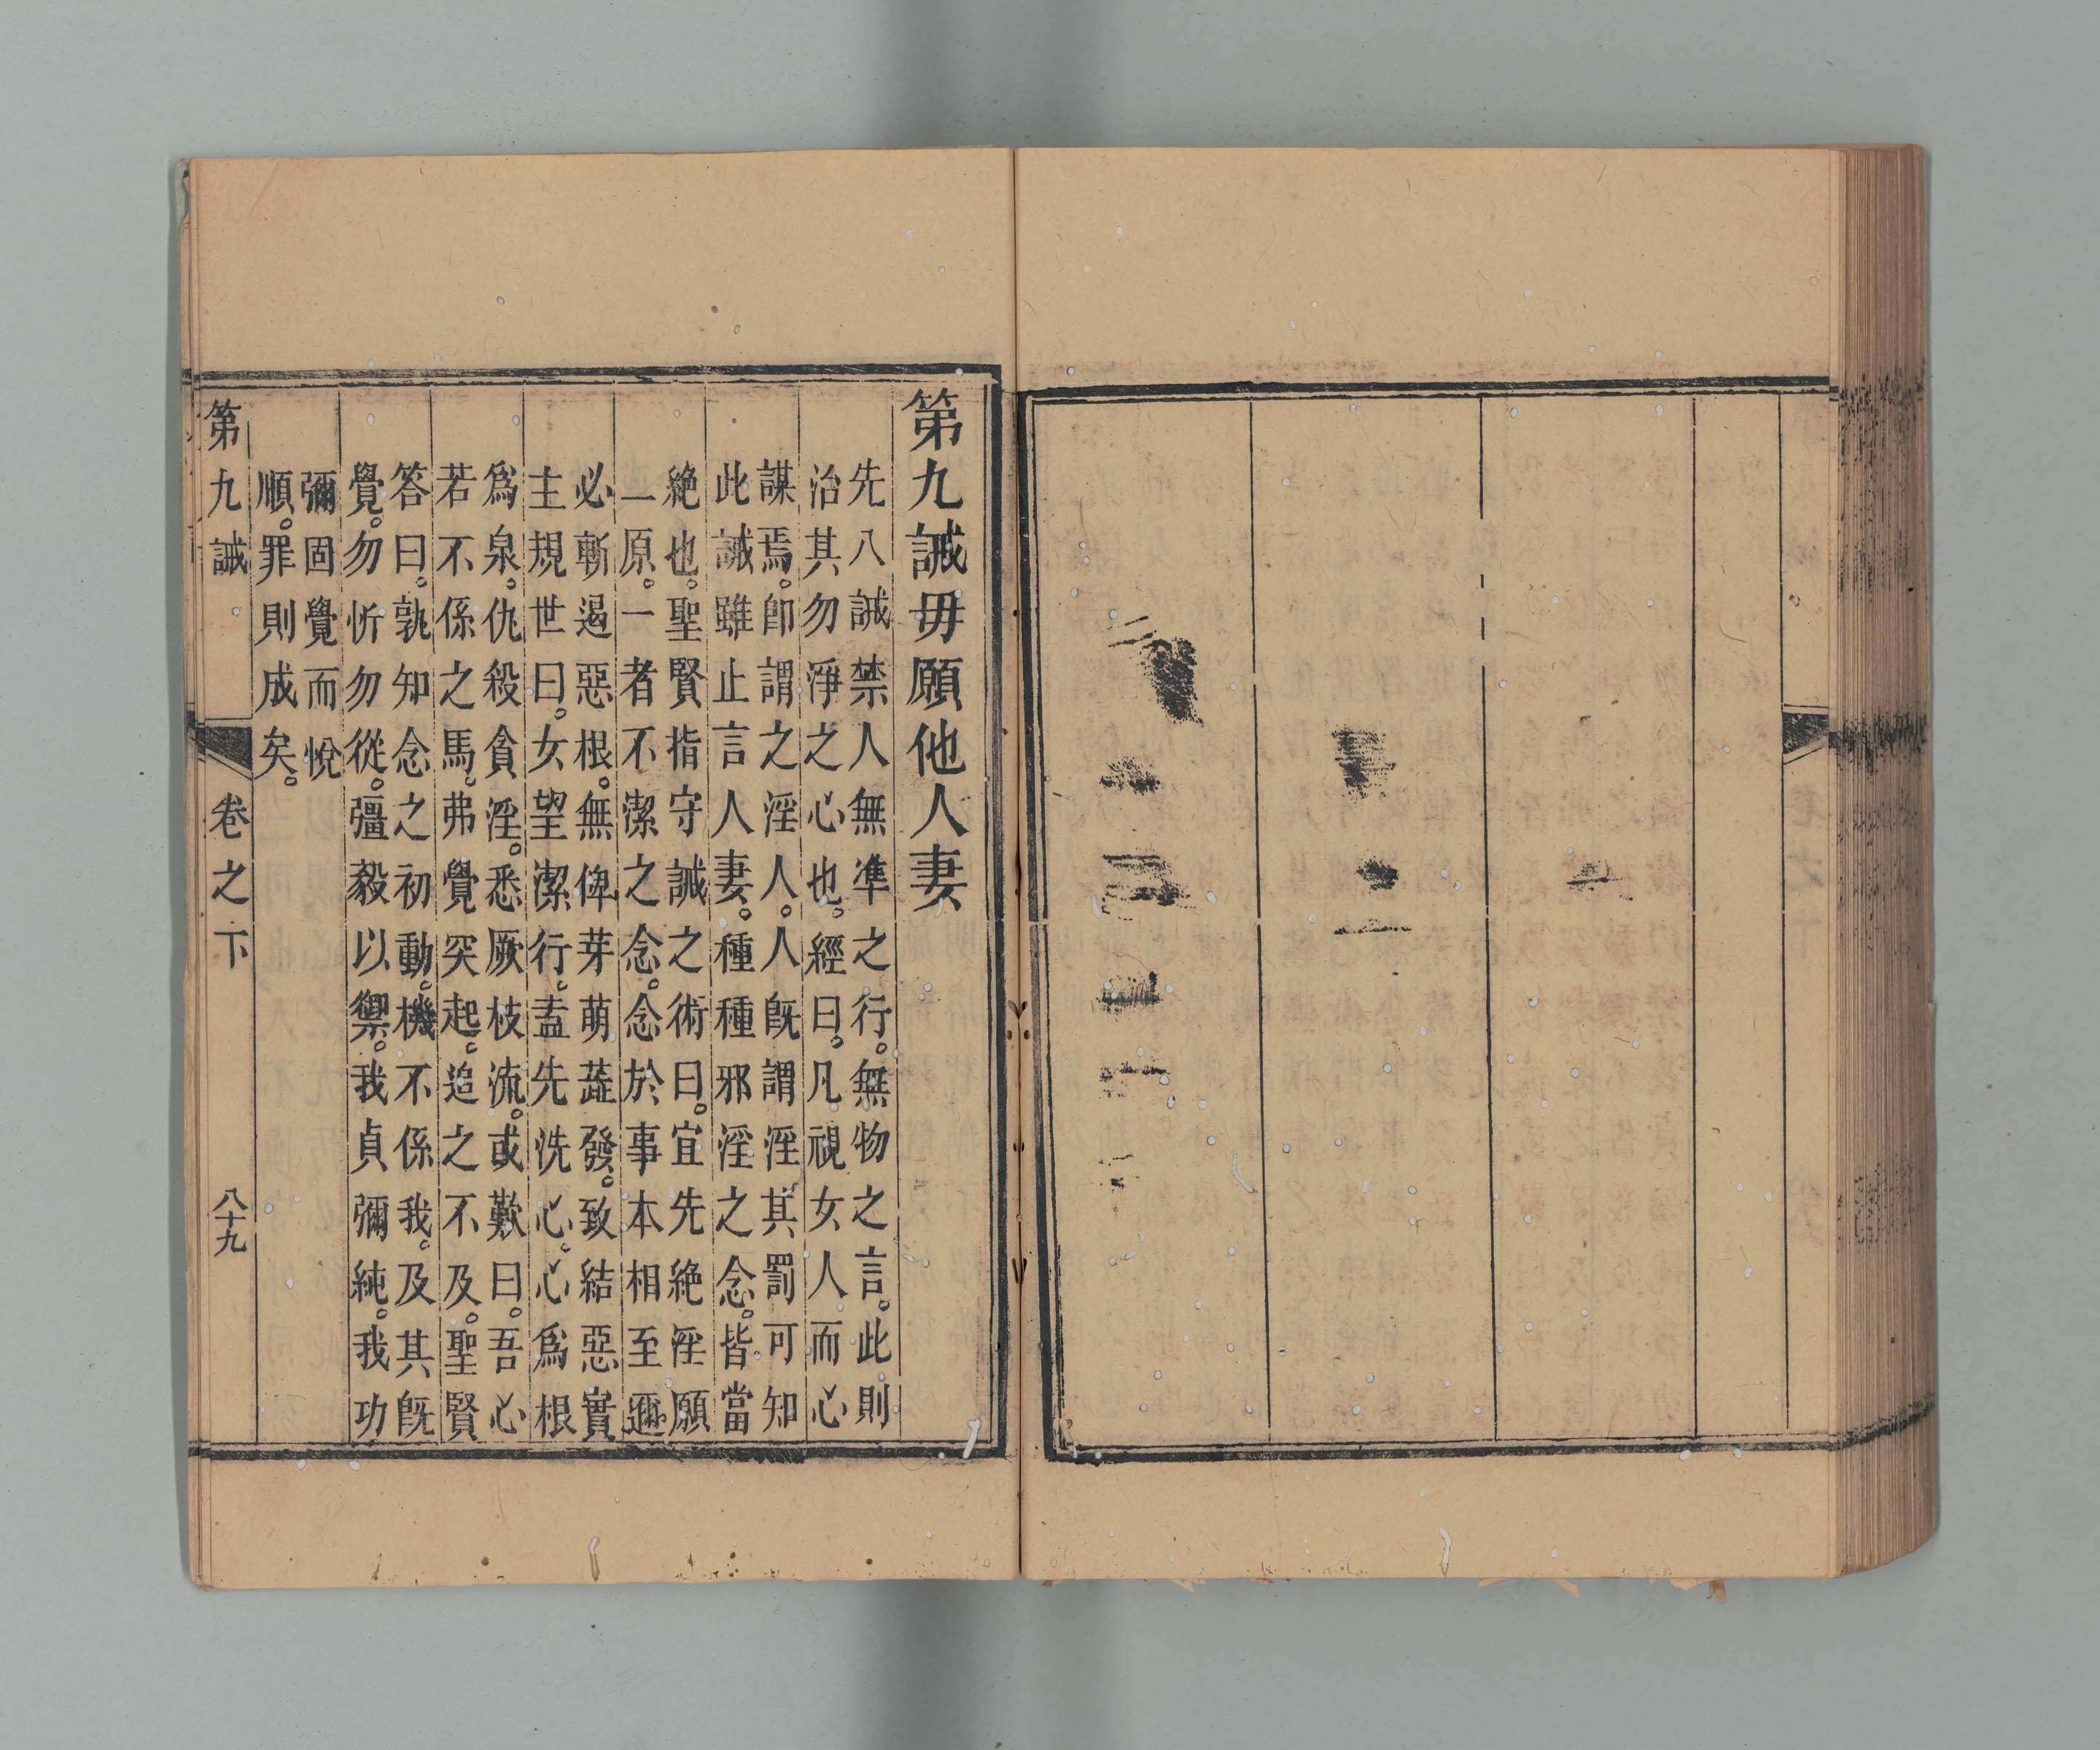 第九誡毋願他人妻
先八誡禁人無凖之行。無物之言。此則
治其勿淨之心也。經曰。凡視女人而心
謀焉。卽謂之淫人。人旣謂淫其罰可知
此誡雖止言人妻。種種邪淫之念。皆當
絶也。聖賢指守誡之術曰。宜先絶淫願
一原。一者不潔之念。念於事本相至邇
必斬遏惡根。無俾芽萌蕋發。致結惡實
主規世曰。女望潔行。盖先洗心。心爲根
爲泉。仇殺貪淫。悉厥枝流。或歎曰。吾心
若不係之馬。弗覺突起。追之不及。聖賢
答曰。孰知念之初動。機不係我。及其旣
覺。勿忻勿從。彊毅以禦。我貞彌純。我功
彌固覺而悅
順。罪則成矣。
第九誡 卷之下 八十九